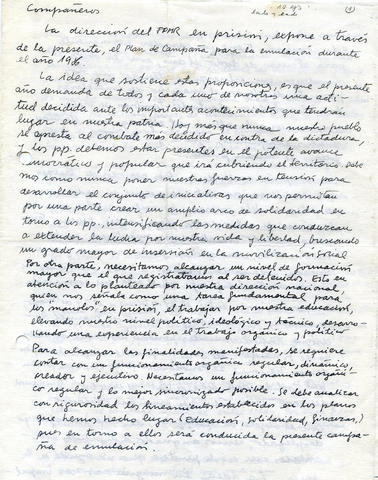 Compañeros
La dirección del FPMR en prisión, expone a través
de la presente, el Plan de Campaña para la emulación durante
el año 1986.
La idea que sostiene estas proposiciones, es que el presente
año demanda de todos y cada uno de nosotros una acti-
tud decidida ante los importantes acontecimientos que tendrán
lugar en nuestra patria. Hoy más que nunca nuestro pueblo
se apresta al combate más decidido en contra de la dictadura,
y los pp. debemos estar presentes en el potente avance
democrático y popular que irá cubriendo el territorio. Debe
mos como nunca poner nuestras fuerzas en tensión para
desarrollar el conjunto de iniciativas que nos permitan
por una parte crear un amplio arco de solidaridad en
torno a los pp, intensificando las medidas que conduzcan
a extender la lucha por nuestra vida y libertad, buscando
un grado mayor de inserción en la movilización social
Por otra parte, necesitamos alcanzar un nivel de formación
mayor que el que registrábamos al ser detenidos. Esto en
atención a lo planteado por nuestra dirección nacional
quien nos señala como una tarea fundamental para
los "manolos" en prisión, el trabajar por nuestra educación,
elevando nuestro nivel político, ideológico y técnico, desarro-
llando una experiencia en el trabajo orgánico y político
Para alcanzar las finalidades manifestadas, se requiere
contar con un funcionamiento orgánico regular, dinámico,
creador y ejecutivo. Necesitamos un funcionamiento orgáni
co regular y lo mejor sincronizado posible. Se debe analizar
con rigurosidad los lineamientos establecidos en los planos
que hemos hecho llegar (Educación, Solidaridad, Finanzas,)
pues en torno a ellos será conducida la presente campa-
ña de emulación.